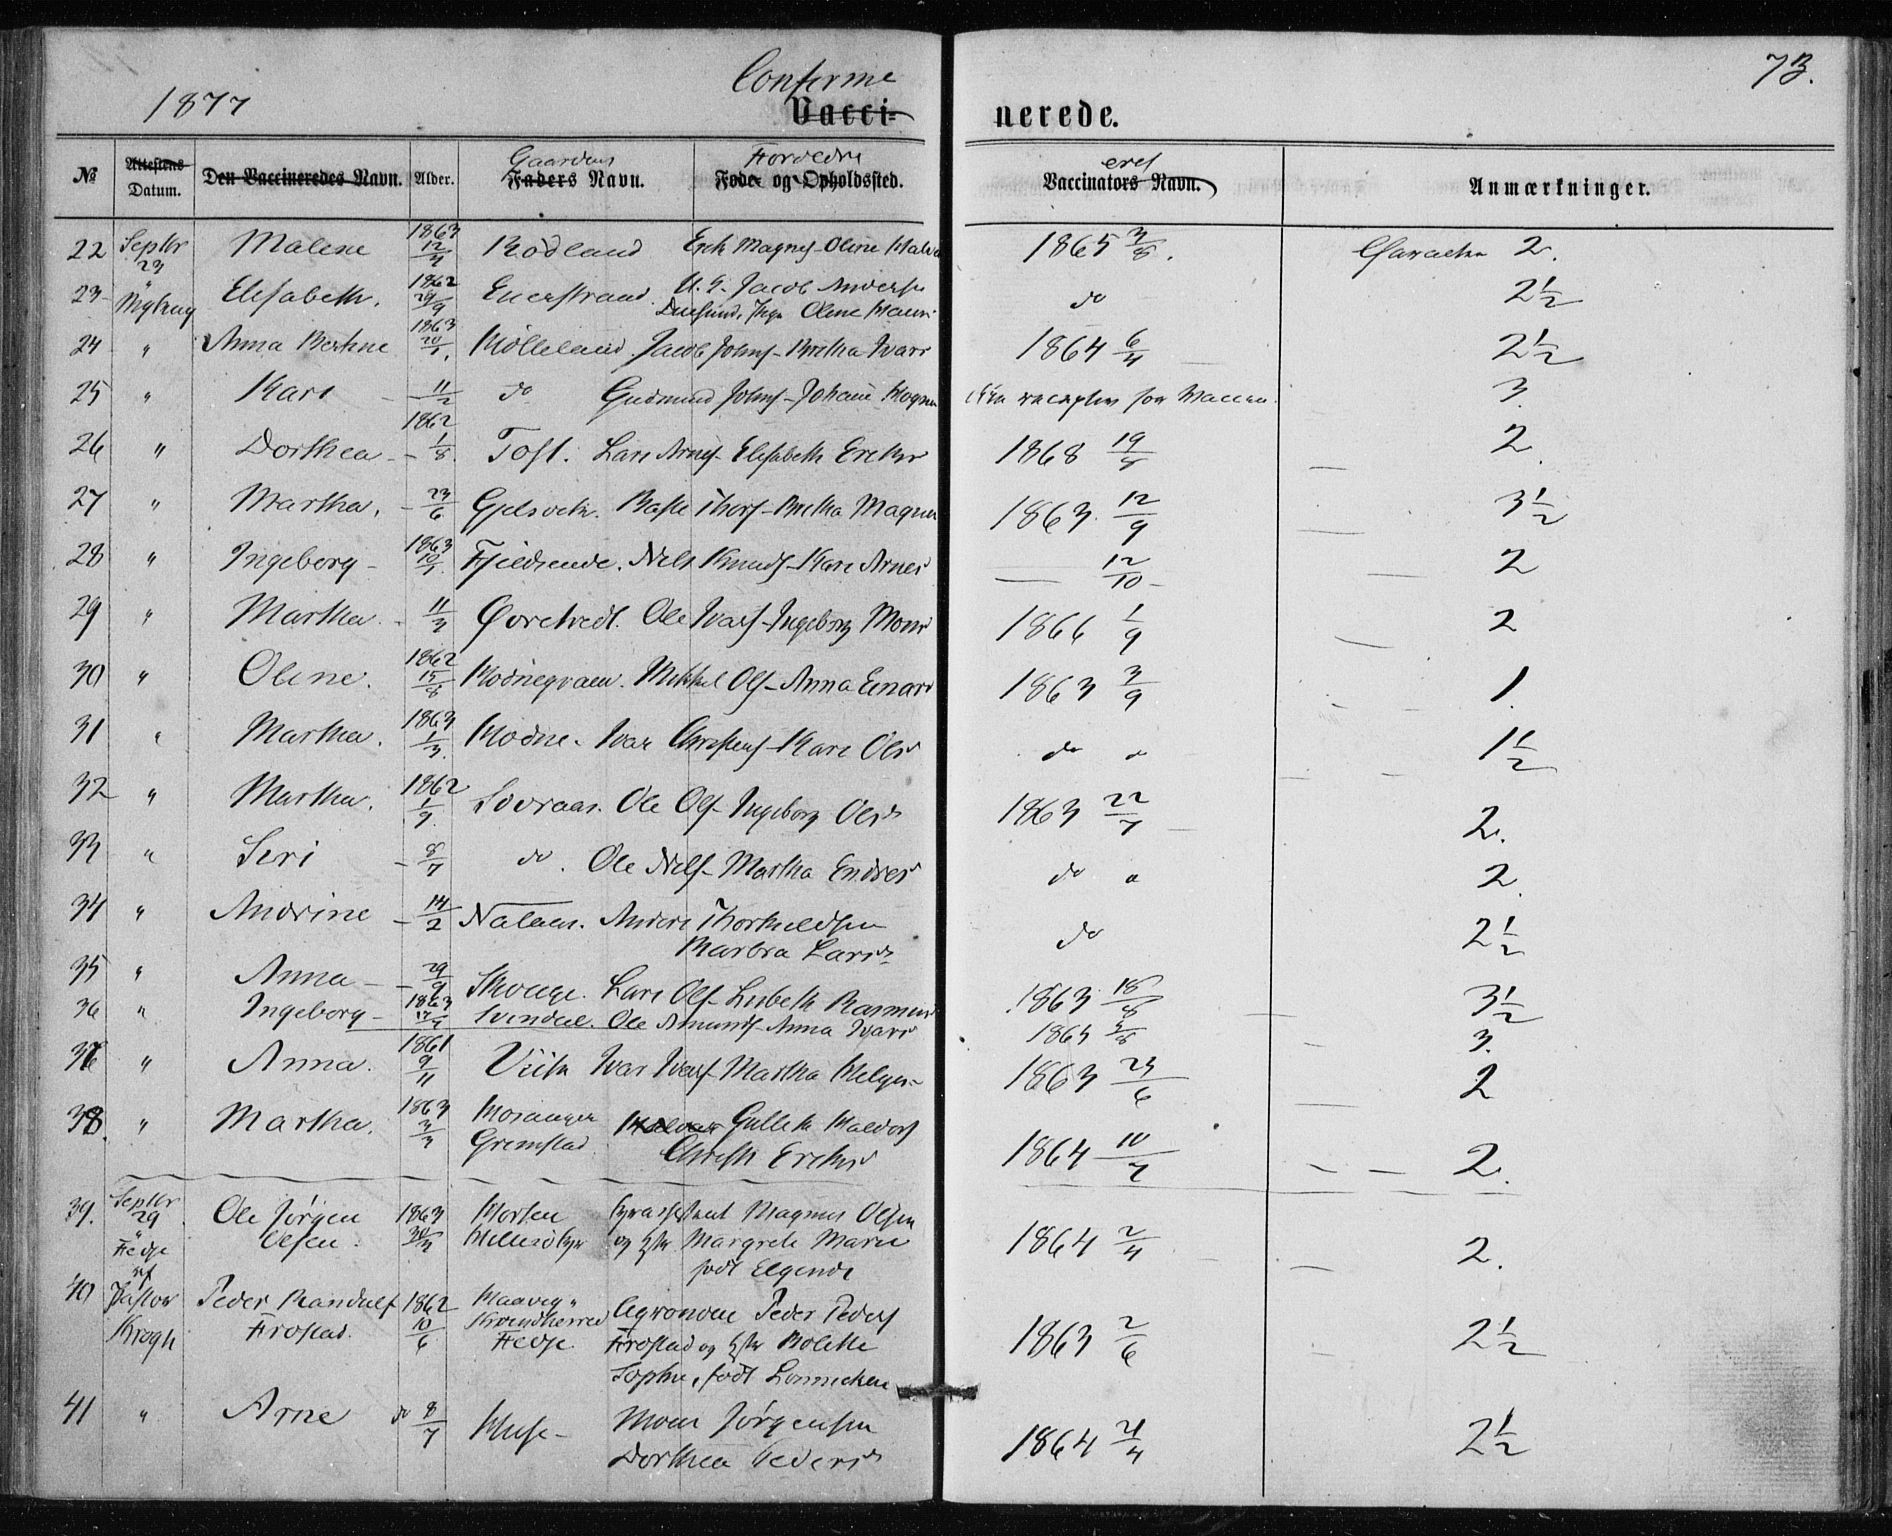 1877
Conferme
Vacci-
nerede.
73.
No
Attestens Datum.
Den Vaccineredes Navn.
Alder.
Gaardens
Faders Navn.
Foreldre
Føde- og Opholdssted.
eret
Vaccinators Navn.
Anmærkninger.
22 Septbr 23 Malene 1863 12/4 Rødland Erik Magnes- Oline 1865 3/8. Caracter 2.
23 " Elisabeth. 1862 29/9 U. G. Jacob Anders do 2½
Oline
24 " Anna 1863 20/1. Mølleland Jacob Johns- Britha Ivars 1864 6/4 2½
25 " Kari - 11/2 do Gudmund Johns- Johanne Mogns for Vaccin. 3.
26 " Dorthea 1862 - 1/8 Toft. Lars Arnes- Elisabeth Eriks 1868 19/8 2.
27 " Martha. - 23/6 Gjelsvik. Thors- Britha Magnes 1863. 12/9 3½
28 " Ingeborg - 1863 10/1. Fjeldsende. Nels Knuds- Kari Arnes — 12/10 - 2
29 " Martha. - 11/3 Øvretvedt. Ole Ivars- Ingeborg Mons 1866 1/9 2
30 " Oline. 1862 15/8 Mikkel Ols- Anna Einars 1863 3/9 1.
31 " Martha. 1863 1/3. Ivar Christens- Kari Ols do " 1½
32 " Martha. 1862 1/9. Sovraas. Ole Ols- Ingeborg Olsd 1863 22/7 2.
33 " Seri - 8/7 do. Ole Nels- Martha Endres do " 2.
34 " Andrine - 14/2 Nataas. Anders Thorkildsen do 2½
Barbra Larsd.
35 " Anna - 29/9 Skouge. Lars Ols- Lisbeth Rasmus 1863 18/8 3½
36 " Ingeborg - 1863 Svindal. Ole Amunds- Anna Ivars 1865 3/8 3.
37 " Anna. 1861 9/11 Ivar Ivars- Martha Helges- 1863 23/6 2
38. " Martha. 1863 3/3 Mosanger Grimstad Gullik Haldors 1864 10/7 2.
Eriks
39. Septbr 29 Fedje Ole Jørgen Olsen. 1863 30/3 Hellesø Fyr Fyrassistent Magnus Olsen 1864 2/4 2.
og Hstr Margrete Marie
født
40 v/ Pastor Krogh Peder Randulf Frostad. 1862 10/6 Kvindherred Fedje Agronom Peder Peders 1863 2/6 2½
Frostad og Hstr Bolette
Sophie, født
41 " Arne do 8/7 Huse- Mons Jørgensen 1864 4/4 2½
Dorthea Pedersd